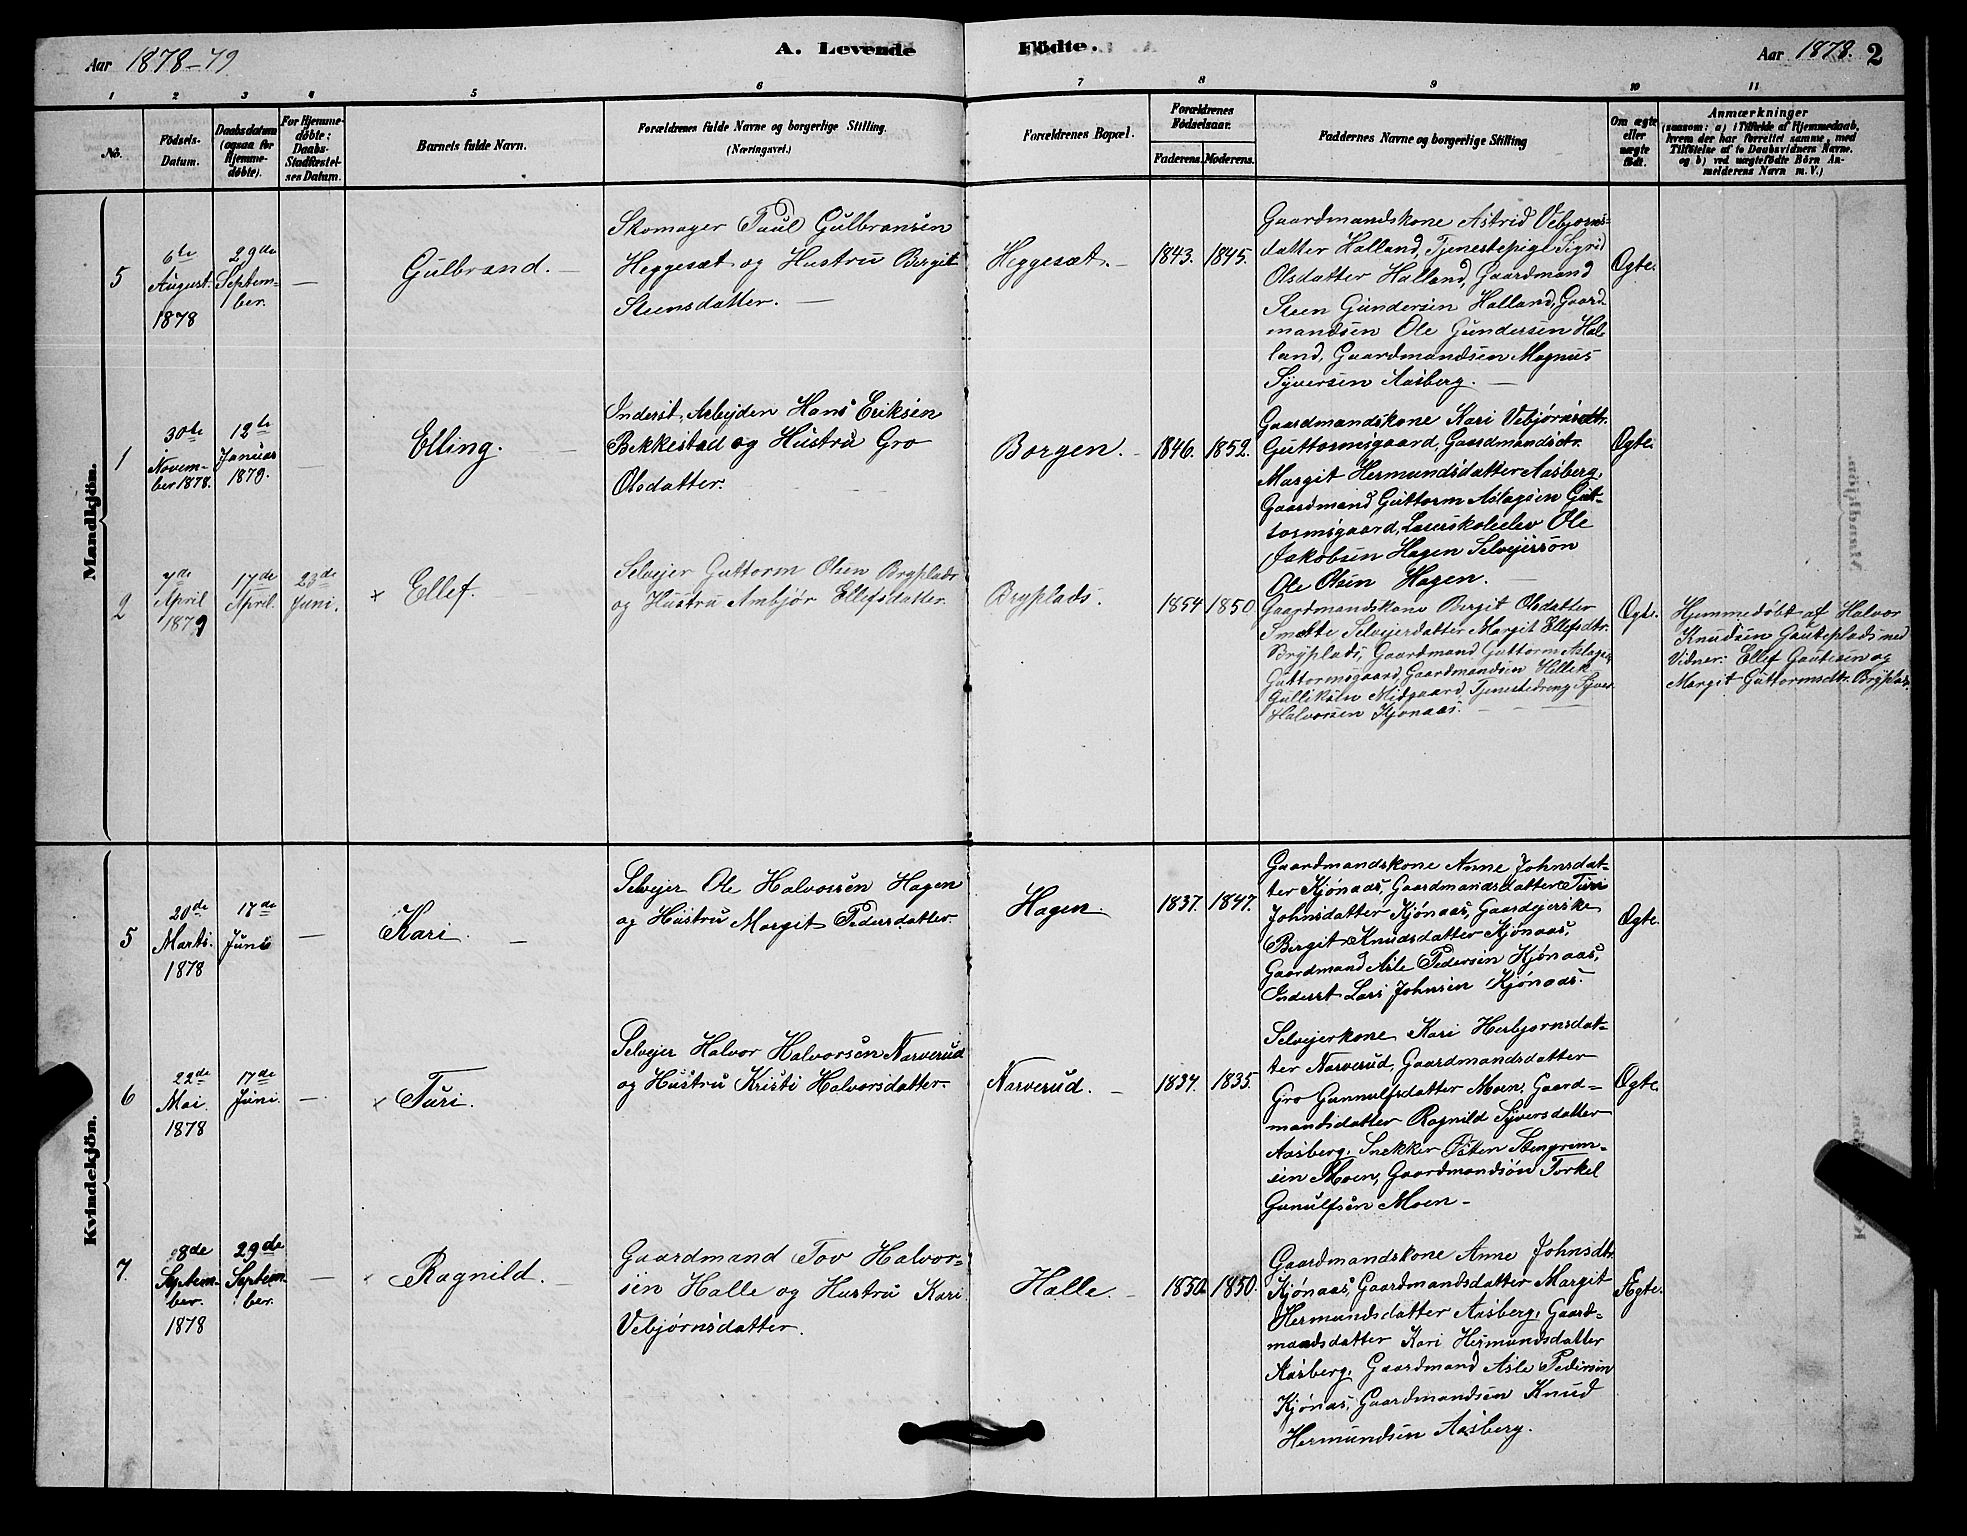 Aar 1878-79
A. Levende
Födte.
Aar 1878.
2
1 2 3 4 5 6 7 8 9 10 11
No.
Födsels-
Datum.
Daabsdatum
(ogsaa for
Hjemme-
döbte).
For Hjemme-
døbte:
Daabs-
Stadfæstel-
ses Datum.
Barnets fulde Navn.
Forældrenes fulde Navne og borgerlige Stilling.
(Næringsvei.)
Forældrenes Bopæl.
Forældrenes
Födselsaar.
Faderens. Moderens.
Faddernes Navne og borgerlige Stilling
Om ægte
eller
uægte
födt.
Anmærkninger
(saasom: a) i Tilfælde af Hjemmedaab,
hvem der har forrettet samme, med
Tilföielse af to Daabsvidners Navne.
og b) ved uægtefödte Börn An-
melderens Navn m. V.)
Mandkjön.
5
6te
August.
1878
29de
Septem-
ber.
—
Gulbrand. —
Skomager Paul Gulbransen
Heggesæt og Hustru Bergit
Steensdatter. —
Heggesæt. —
1843. 1845.
Gaardmandskone Astrid Vebjorns-
datter Halland, Tjenestepige Sigrid
Olsdatter Halland, Gaardmand
Steen Gundersen Halland, Gaard-
mandsen Ole Gundersen Hal-
land, Gaardmandsen Magnus
Syversen Aasberg. —
Ægte.
1
30te
Novem-
ber 1878.
12te
Januar
1879.
—
Elling.
Inderst, Arbejden Hans Eriksen
Bekkestad og Hustru Gro
Olsdatter.
Borgen. -
1846. 1852.
Gaardmandskone Kari Vebjørnsdtr.
Guttormsgaard, Gaardmandsdtr.
Margit Hermundsdatter Aasberg,
Gaardmand Guttorm Aslagsen Gut-
tormsgaard, Lærerskoleelev Ole
Jakobsen Hagen Selvejersøn
Ole Olsen Hagen. —
Ægte.
2
7de
April
1879
17de
April.
23de
Juni.
x Ellef.
Selvejer Guttorm Olsen Bryplads
og Hustru Ambjør Ellefsdatter.
Bryplads.
1854 1850
Gaardmandskone Bergit Olsdatter
Smætte Selvejerdatter Margit Ellefsdtr.
Bryplads, Gaardmand Guttorm Aslagsen
Guttormsgaard, Gaardmandsen Hellek
Gulliksen Midgaard, Tjenestedreng Syver
Halvorsen Kjønaas.
Ægte.
Hjemmedøbt af Halvor
Knudsen Gauteplads med
Vidner: Ellef Gautesen og
Margit Guttormsdtr. Bryplads.
Kvindekjön.
5
20de
Marts.
1878
17de
Juni
—
Kari. —
Selvejer Ole Halvorsen Hagen
og Hustru Margit Pedersdatter
Hagen.
1837. 1847.
Gaardmandskone Anne Johnsdat-
ter Kjønaas, Gaardmandsdatter Turi
Johnsdatter Kjønaas, Gaardejerske
Bergit Knudsdatter Kjønaas,
Gaardmand Asle Pedersen Kjønaas,
Inderst Lars Johnsen Kjønaas.
Ægte.
6
22de
Mai.
1878
17de
Juni.
—
x Turi.
Selvejer Halvor Halvorsen Narverud
og Hustru Kristi Halvorsdatter-
Narverud. —
1834. 1835.
Selvejerkone Kari Herbjornsdat-
ter Narverud, Gaardmandsdatter
Gro Gunnulfsdatter Moen, Gaard-
mandsdatter Ragnild Syversdatter
Aasberg, Snekker Østen Stengrim-
sen Moen, Gaardmandsøn Torkel
Gunulfsen Moen-
Ægte.
7.
8de
Septem-
ber.
1878
29de
Septem-
ber.
—
x Ragnild. —
Gaardmand Tov Halvor-
sen Halle og Hustru Kari
Vebjørnsdatter.
Halle. -
1850. 1850.
Gaardmandskone Anne Johnsdtr.
Kjønaas, Gaardmandsdatter Margit
Hermundsdatter Aasberg, Gaard-
mandsdatter Kari Hermundsdatter
Aasberg, Gaardmand Asle Pedersen
Kjønas, Gaardmandsen Knud
Hermundsen Aasberg.
Ægte.